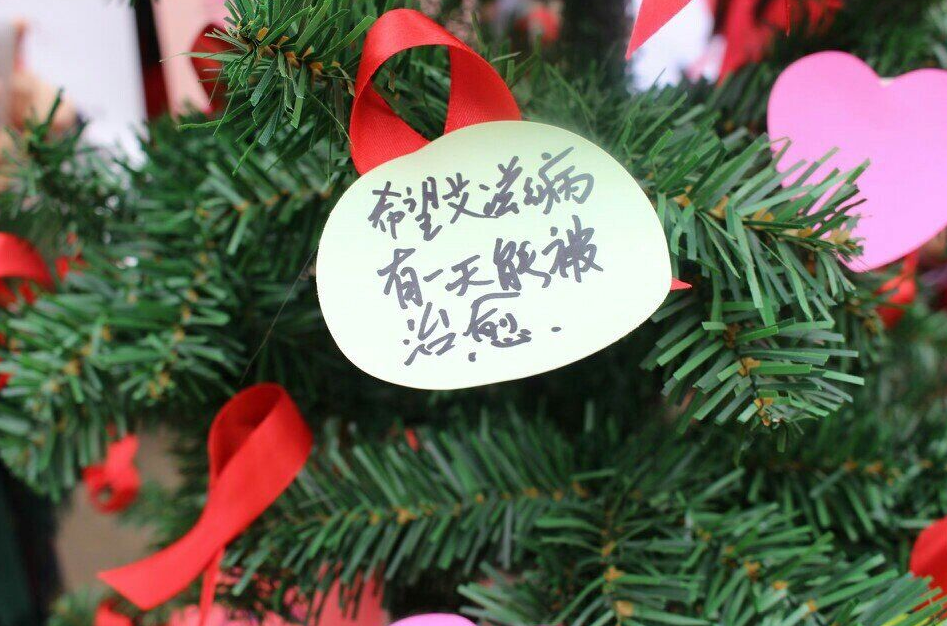 希望艾滋病
有一天能被
治愈.